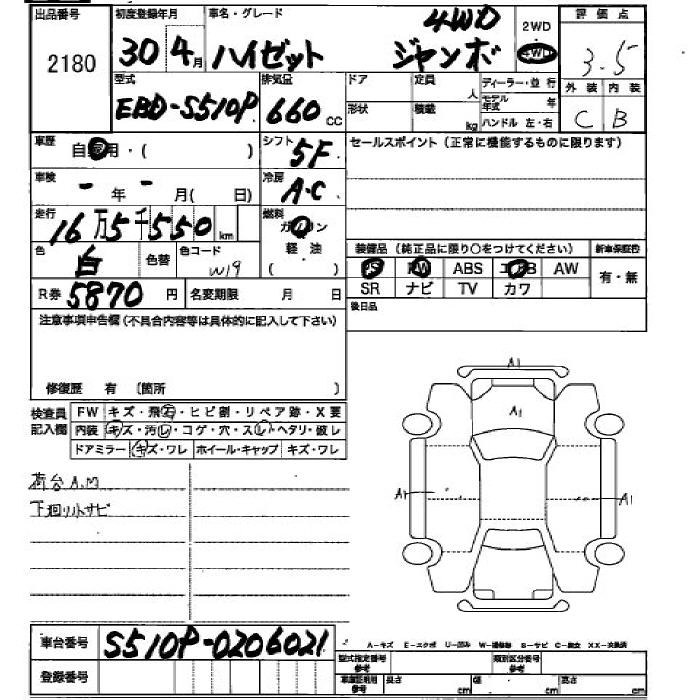 出品番号 初度登録年月 車名・グレード 2WD 評価点
2180 30 4月 ハイゼット 4WD ジャンボ 4WD 3.5
型式 排気量 ドア 定員 人 ディーラー・並行 外装 内装
EBD-S510P 660 cc 形状 積載 kg モデル年式 年 C B
ハンドル 左・右
車歴 自家用・( ) シフト 5F セールスポイント (正常に機能するものに限ります)
車検 - 年 - 月( 日) 冷房 A・C
走行 16万5千550km 燃料 ガソリン
色 白 色替 色コード W19 軽油 ( ) 装備品 (純正品に限り○をつけてください) 新車保証書
PS PW ABS エアB AW 有・無
R券 5870 円 名変期限 月 日 SR ナビ TV カワ
注意事項申告欄 (不具合内容等は具体的に記入して下さい) 後日品
修復歴 有 (箇所 )
検査員記入欄 FW キズ・飛石・ヒビ割・リペア跡・X要
内装 キズ・汚レ・コゲ・穴・スレ・ヘタリ・破レ
ドアミラー キズ・ワレ ホイール・キャップ キズ・ワレ
荷台A.M
下廻リサビ
A1
A1
A1 A1
車台番号 S510P-0206021
A-キズ E-エクボ U-凹み W-補修跡 S-サビ C-腐食 XX-交換済
登録番号 型式指定番号 参考 類別区分番号 参考
車庫証明用 参考 長さ cm 幅 cm 高さ cm